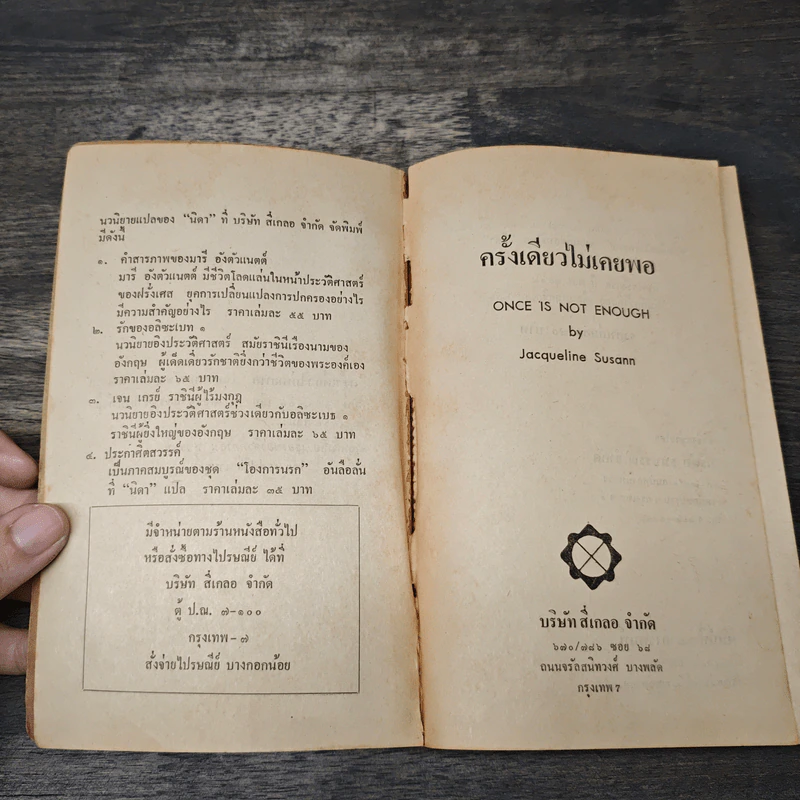 นวนิยายแปลของ “นิดา” ที่ บริษัท สี่เกลอ จำกัด จัดพิมพ์
มีดังนี้
๑. คำสารภาพของมารี อังตัวแนตต์
มารี อังตัวแนตต์ มีชีวิตโลดแล่นในหน้าประวัติศาสตร์
ของฝรั่งเศส ยุคการเปลี่ยนแปลงการปกครองอย่างไร
มีความสำคัญอย่างไร ราคาเล่มละ ๕๕ บาท
๒. รักของอลิซะเบท ๑
นวนิยายอิงประวัติศาสตร์ สมัยราชินีเรืองนามของ
อังกฤษ ผู้เด็ดเดี่ยวรักชาติยิ่งกว่าชีวิตของพระองค์เอง
ราคาเล่มละ ๖๕ บาท
๓. เจน เกรย์ ราชินีผู้ไร้มงกุฎ
นวนิยายอิงประวัติศาสตร์ช่วงเดียวกับอลิซะเบธ ๑
ราชินีผู้ยิ่งใหญ่ของอังกฤษ ราคาเล่มละ ๖๕ บาท
๔. ประกาศิตสวรรค์
เป็นภาคสมบูรณ์ของชุด “โองการนรก” อันลือลั่น
ที่ “นิดา” แปล ราคาเล่มละ ๓๕ บาท
มีจำหน่ายตามร้านหนังสือทั่วไป
หรือสั่งซื้อทางไปรษณีย์ ได้ที่
บริษัท สี่เกลอ จำกัด
ตู้ ป.ณ. ๗-๑๐๐
กรุงเทพ-๗
สั่งจ่ายไปรษณีย์ บางกอกน้อย
ครั้งเดียวไม่เคยพอ
ONCE IS NOT ENOUGH
by
Jacqueline Susann
บริษัท สี่เกลอ จำกัด
๖๗๐/๗๘๖ ซอย ๖๘
ถนนจรัลสนิทวงศ์ บางพลัด
กรุงเทพ 7